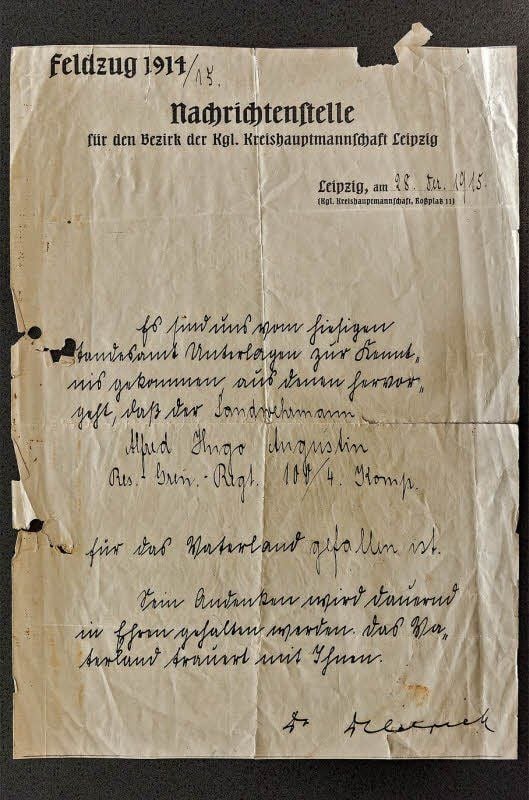 Feldzug 1914/15.
Nachrichtenstelle
für den Bezirk der Kgl. Kreishauptmannschaft Leipzig
Leipzig, am 28. Dez. 1915.
(Kgl. Kreishauptmannschaft, Roßplatz 11)
Es sind uns vom hiesigen
Standesamt Unterlagen zur Kennt„
nis gekommen, aus denen hervor„
geht, daß der Landwehrmann
Alfred Hugo Augustin
Res.-Gren.-Regt. 100/4. Komp.
für das Vaterland gefallen ist.
Sein Andenken wird dauernd
in Ehren gehalten werden. Das Va„
terland trauert mit Ihnen.
Dr